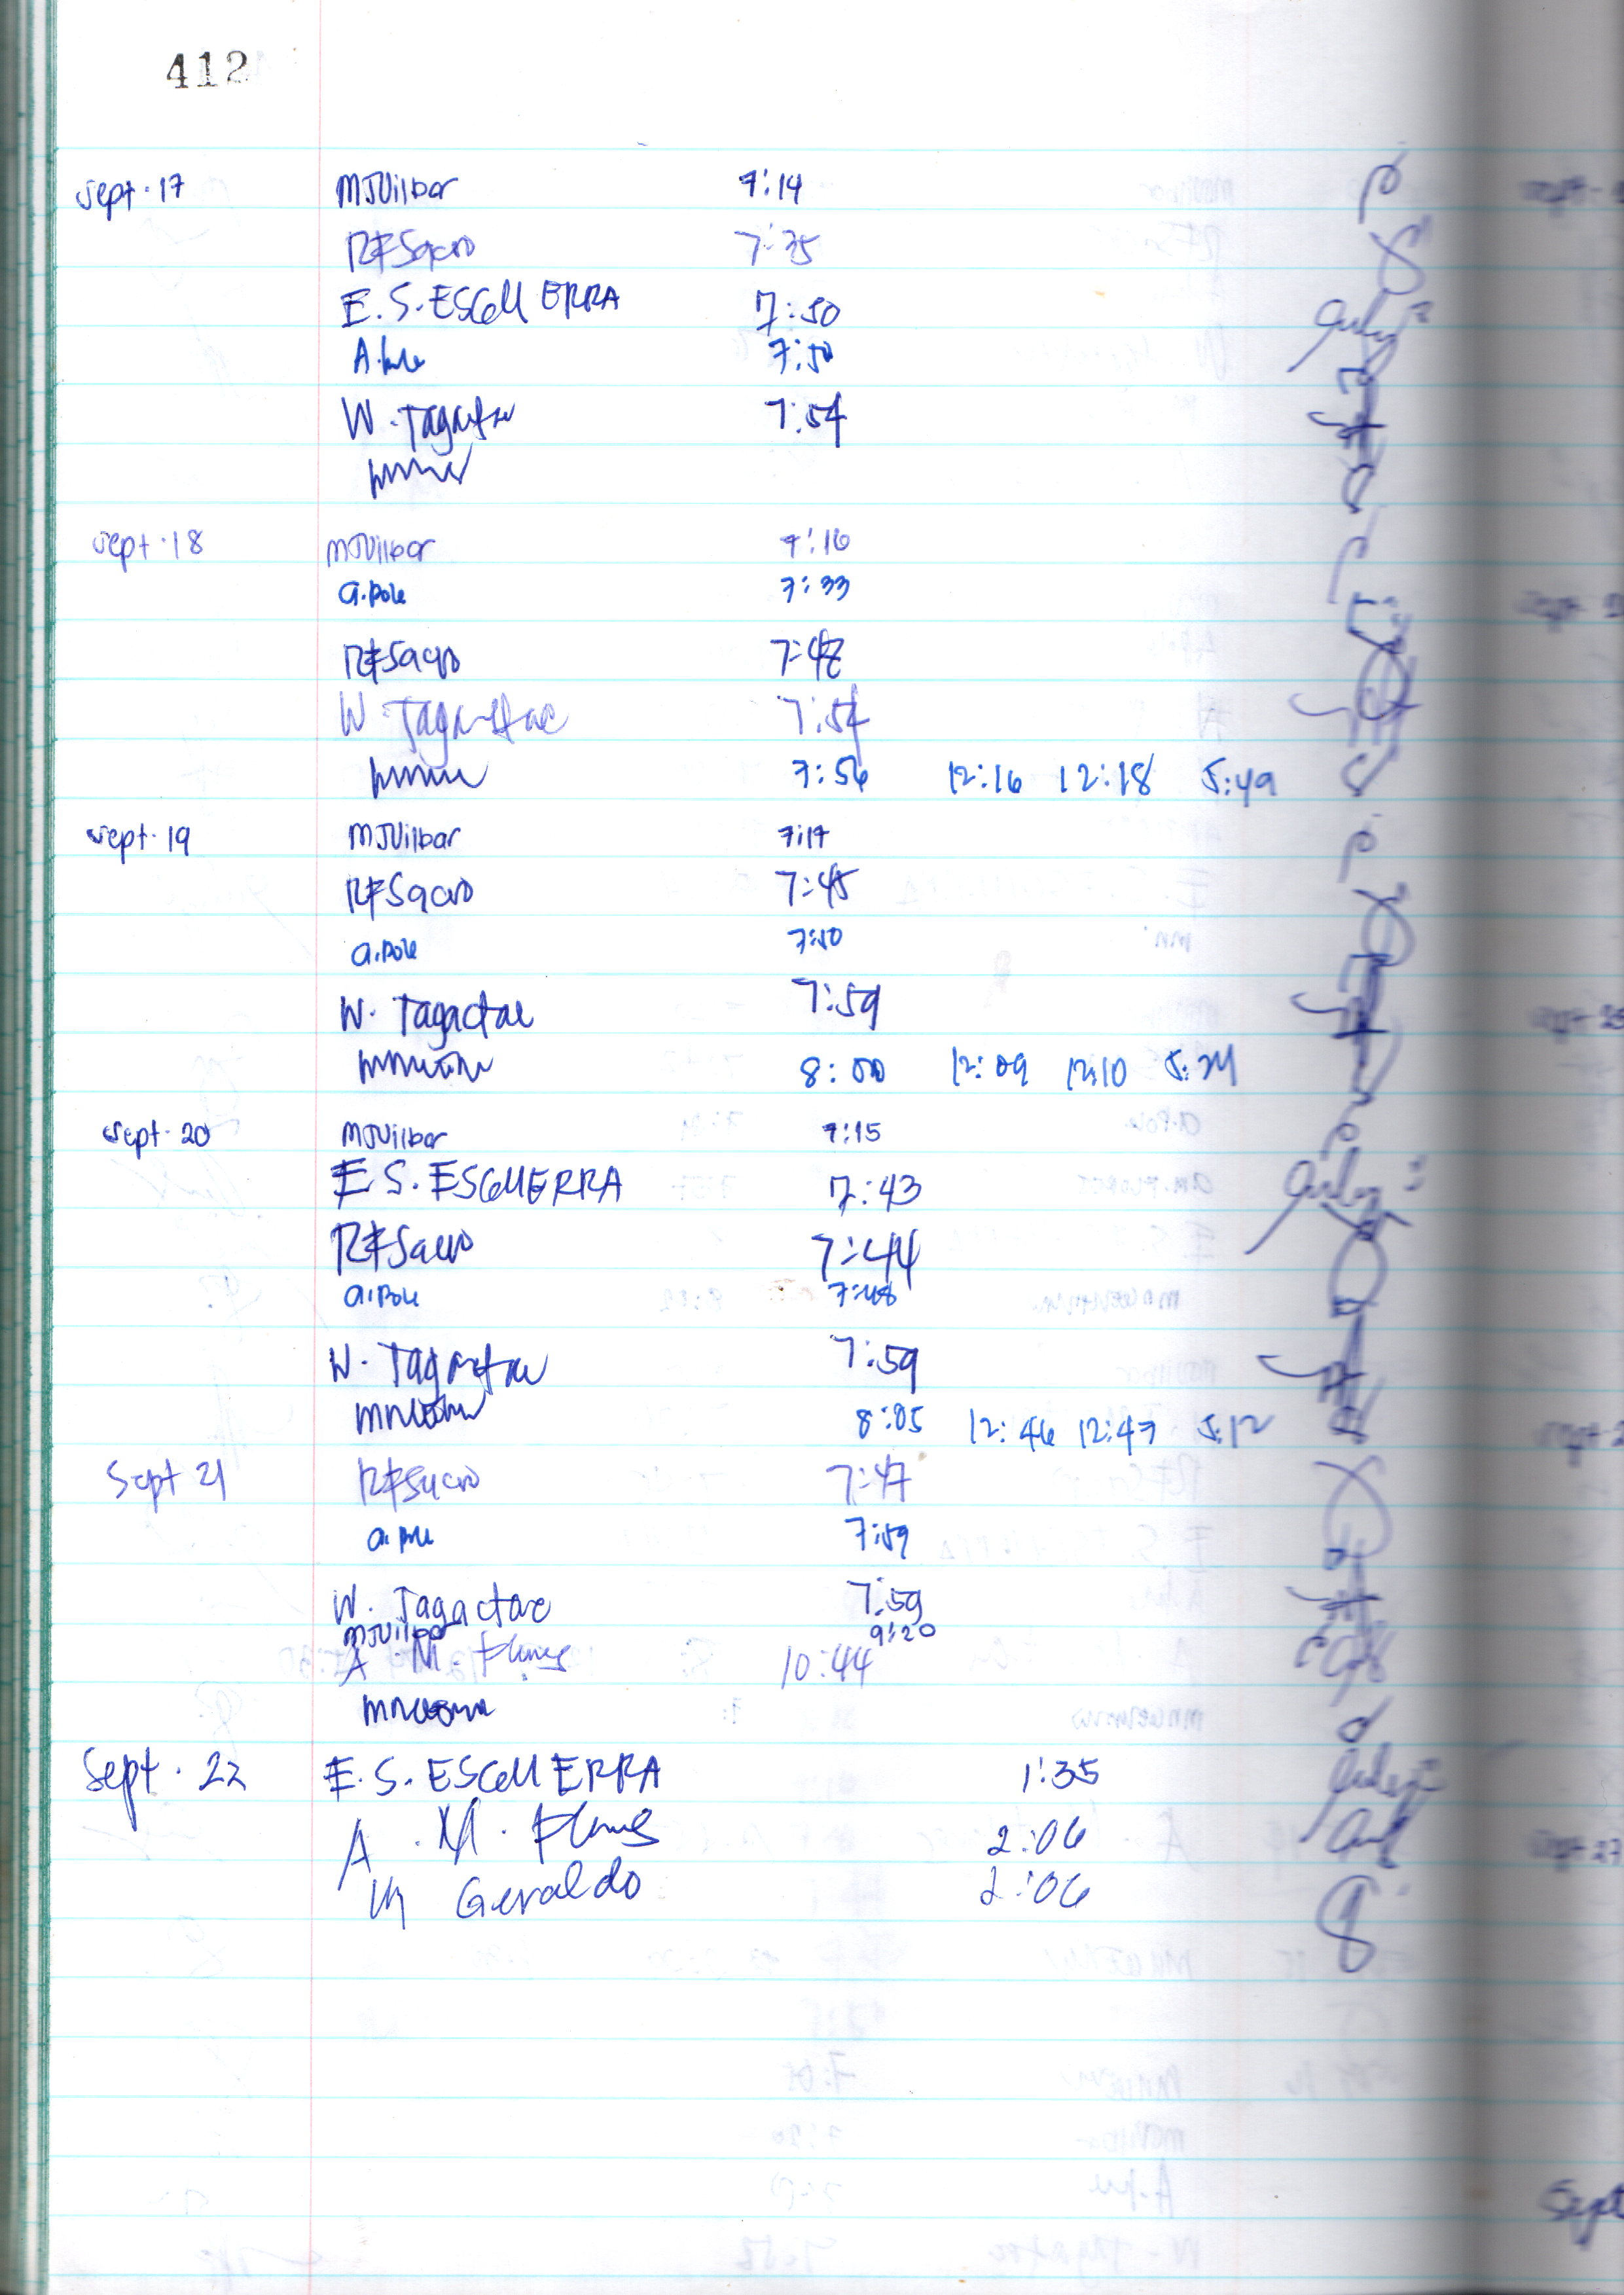 412
Sept. 17 MJVilbar 7:14
RFSacro 7:35
E. S. ESGUERRA 7:50
A. Pole 7:50
W. Tagactac 7:54
Sept. 18 MJVilbar 7:16
a. Pole 7:33
RFSacro 7:48
W. Tagactac 7:54
7:56 12:16 12:18 5:49
Sept. 19 MJVilbar 7:17
RFSacro 7:45
a. Pole 7:50
W. Tagactac 7:59
8:00 12:09 12:10 5:24
Sept. 20 MJVilbar 7:15
E. S. ESGUERRA 7:43
RFSacro 7:44
a. Pole 7:48
W. Tagactac 7:59
8:05 12:46 12:47 5:12
Sept 21 RFSacro 7:47
a. Pole 7:59
W. Tagactac 7:59
MJVilbar 9:20
A. M. Flores 10:44
Sept. 22 E. S. ESGUERRA 1:35
A. M. Flores 2:06
M Geraldo 2:06